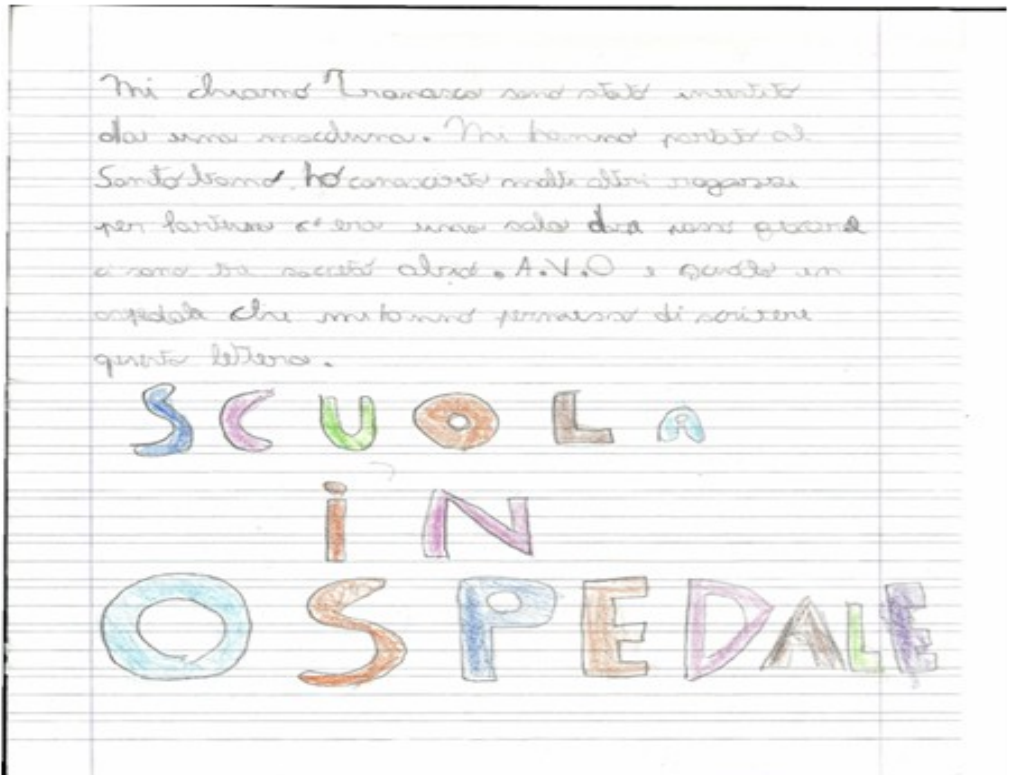 Mi chiamo Francesco sono stato investito
da una macchina. Mi hanno portato al
Santobono ho conosciuto molti altri ragazzi
per fortuna c'era una sala
ci sono tre società A.V.O e scuola in
ospedale che mi hanno permesso di scrivere
questa lettera.
SCUOLA
iN
OSPEDALE